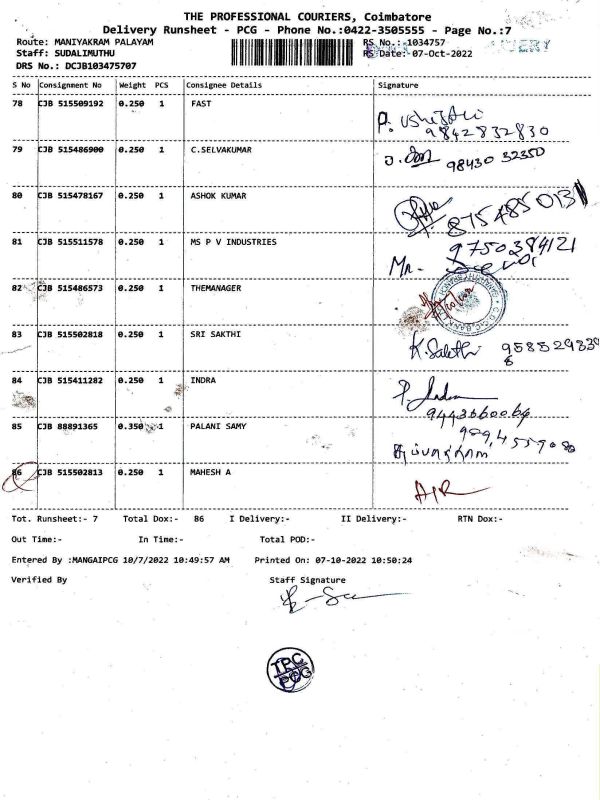 THE PROFESSIONAL COURIERS, Coimbatore
Delivery Runsheet - PCG - Phone No.:0422-3505555 - Page No.:7
Route: MANIYAKRAM PALAYAM RS No.:-1034757
Staff: SUDALIMUTHU RS Date:-07-Oct-2022
DRS No.: DCJB103475707
S No Consignment No Weight PCS Consignee Details Signature
78 CJB 515509192 0.250 1 FAST
9842832830
79 CJB 515486900 0.250 1 C.SELVAKUMAR
98430 32350
80 CJB 515478167 0.250 1 ASHOK KUMAR
81 CJB 515511578 0.250 1 MS P V INDUSTRIES
9750384121
Mr.
82 CJB 515486573 0.250 1 THEMANAGER
83 CJB 515502818 0.250 1 SRI SAKTHI
K. Sakthi
84 CJB 515411282 0.250 1 INDRA
85 CJB 88891365 0.350 1 PALANI SAMY
86 CJB 515502813 0.250 1 MAHESH A
AIR
Tot. Runsheet:- 7 Total Dox:- 86 I Delivery:- II Delivery:- RTN Dox:-
Out Time:- In Time:- Total POD:-
Entered By :MANGAIPCG 10/7/2022 10:49:57 AM Printed On: 07-10-2022 10:50:24
Verified By Staff Signature
TPC
PCG